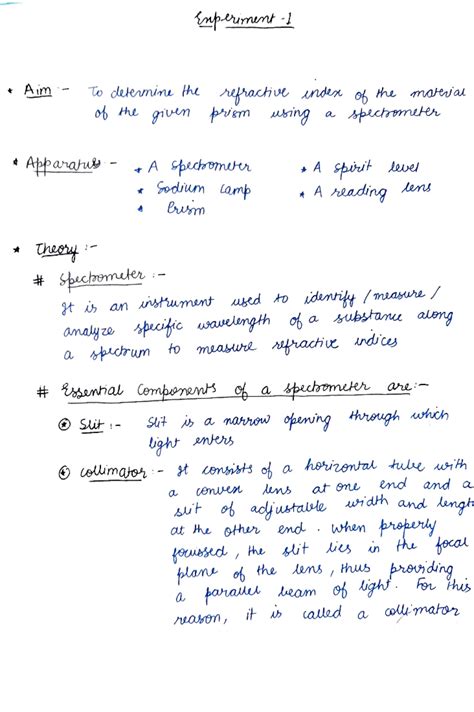 Experiment -1
* Aim :- To determine the refractive index of the material
of the given prism using a spectrometer
* Apparatus :- * A spectrometer * A spirit level
* Sodium Lamp * A reading lens
* Prism
* Theory :-
# Spectrometer :-
It is an instrument used to identify / measure /
analyze specific wavelength of a substance along
a spectrum to measure refractive indices
# Essential Components of a spectrometer are:-
⊛ Slit :- Slit is a narrow opening through which
light enters
⊛ Collimator :- It consists of a horizontal tube with
a convex lens at one end and a
slit of adjustable width and length
at the other end. When properly
focussed, the slit lies in the focal
plane of the lens, thus providing
a parallel beam of light. For this
reason, it is called a collimator